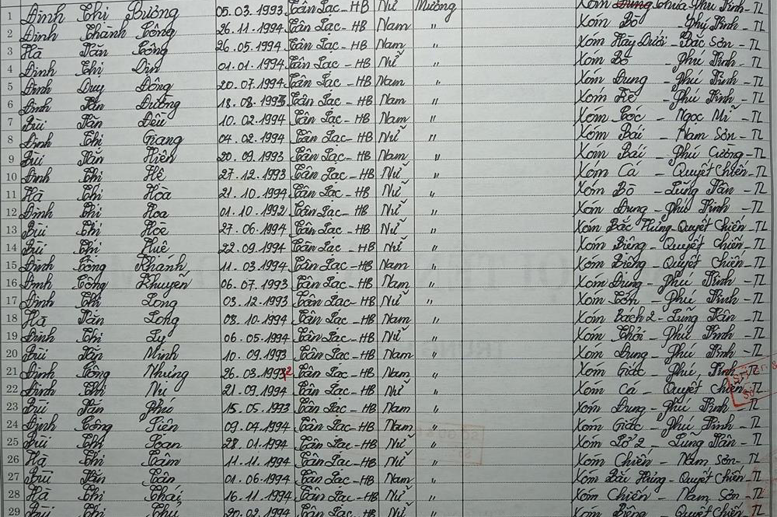 1 Đinh Thị Dương 05.03.1993 Tân Lạc - HB Nữ Mường Xóm Chùa Phú Vinh - TL
2 Đinh Thành Công 26.11.1994 Tân Lạc - HB Nam " Xóm Bò - Phú Vinh - TL
3 Hà Văn Công 26.05.1994 Tân Lạc - HB Nam " Xóm Hày Dưới - Bắc Sơn - TL
4 Đinh Thị Dịn 01.01.1994 Tân Lạc - HB Nữ " Xóm Bò - Phú Vinh - TL
5 Đinh Duy Đông 20.07.1994 Tân Lạc - HB Nam " Xóm Dung - Phú Vinh - TL
6 Đinh Văn Dương 18.08.1993 Tân Lạc - HB Nam " Xóm Kè - Phú Vinh - TL
7 Bùi Văn Điều 10.02.1994 Tân Lạc - HB Nam " Xóm Cóc - Ngọc Mĩ - TL
8 Đinh Thị Giang 04.02.1994 Tân Lạc - HB Nữ " Xóm Bái - Nam Sơn - TL
9 Bùi Văn Hiến 20.09.1993 Tân Lạc - HB Nam " Xóm Bái - Phú Cường - TL
10 Đinh Thị Hè 27.12.1993 Tân Lạc - HB Nữ " Xóm Cá - Quyết Chiến - TL
11 Hà Thị Hòa 21.10.1994 Tân Lạc - HB Nữ " Xóm Bò - Lũng Vân - TL
12 Đinh Thị Hoa 01.10.1992 Tân Lạc - HB Nữ " Xóm Dung - Phú Vinh - TL
13 Bùi Thị Hòe 27.06.1994 Tân Lạc - HB Nữ " Xóm Bắc Hưng - Quyết Chiến - TL
14 Bùi Thị Huê 22.09.1994 Tân Lạc - HB Nữ " Xóm Biệng - Quyết Chiến - TL
15 Đinh Công Khánh 11.03.1994 Tân Lạc - HB Nam " Xóm Biệng - Quyết Chiến - TL
16 Đinh Công Khuyến 06.07.1993 Tân Lạc - HB Nam " Xóm Dung - Phú Vinh - TL
17 Đinh Thị Long 03.12.1993 Tân Lạc - HB Nữ " Xóm - Phú Vinh - TL
18 Hà Văn Long 08.10.1994 Tân Lạc - HB Nam Xóm Bách 2 - Lũng Vân - TL
19 Đinh Thị Lý 06.05.1994 Tân Lạc - HB Nữ " Xóm Thỏi - Phú Vinh - TL
20 Bùi Văn Minh 10.09.1993 Tân Lạc - HB Nam " Xóm Dung - Phú Vinh - TL
21 Đinh Công Nhưng 26.03.1992 Tân Lạc - HB Nam " Xóm Giác - Phú Vinh - TL
22 Đinh Thị Nụ 21.09.1994 Tân Lạc - HB Nữ " Xóm Cá - Quyết Chiến - TL
23 Bùi Văn Phú 15.05.1993 Tân Lạc - HB Nam " Xóm Dung - Phú Vinh - TL
24 Đinh Công Tiến 09.04.1994 Tân Lạc - HB Nam " Xóm Giác - Phú Vinh - TL
25 Bùi Thị Soan 28.01.1994 Tân Lạc - HB Nữ " Xóm Lở 2 - Lũng Vân - TL
26 Hà Thị Tâm 11.11.1994 Tân Lạc - HB Nữ " Xóm Chiến - Nam Sơn - TL
27 Bùi Văn Tân 01.06.1994 Tân Lạc - HB Nam " Xóm Bắc Hưng - Quyết Chiến - TL
28 Hà Thị Thái 16.11.1994 Tân Lạc - HB Nữ " Xóm Chiến - Nam Sơn - TL
29 Bùi Thị Thú 20.02.1994 Tân Lạc - HB Nữ " Xóm Biệng - Quyết Chiến - TL